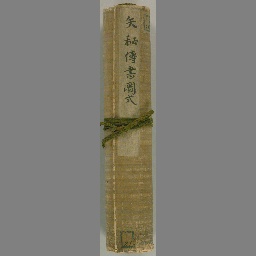 矢秘傳書圖式